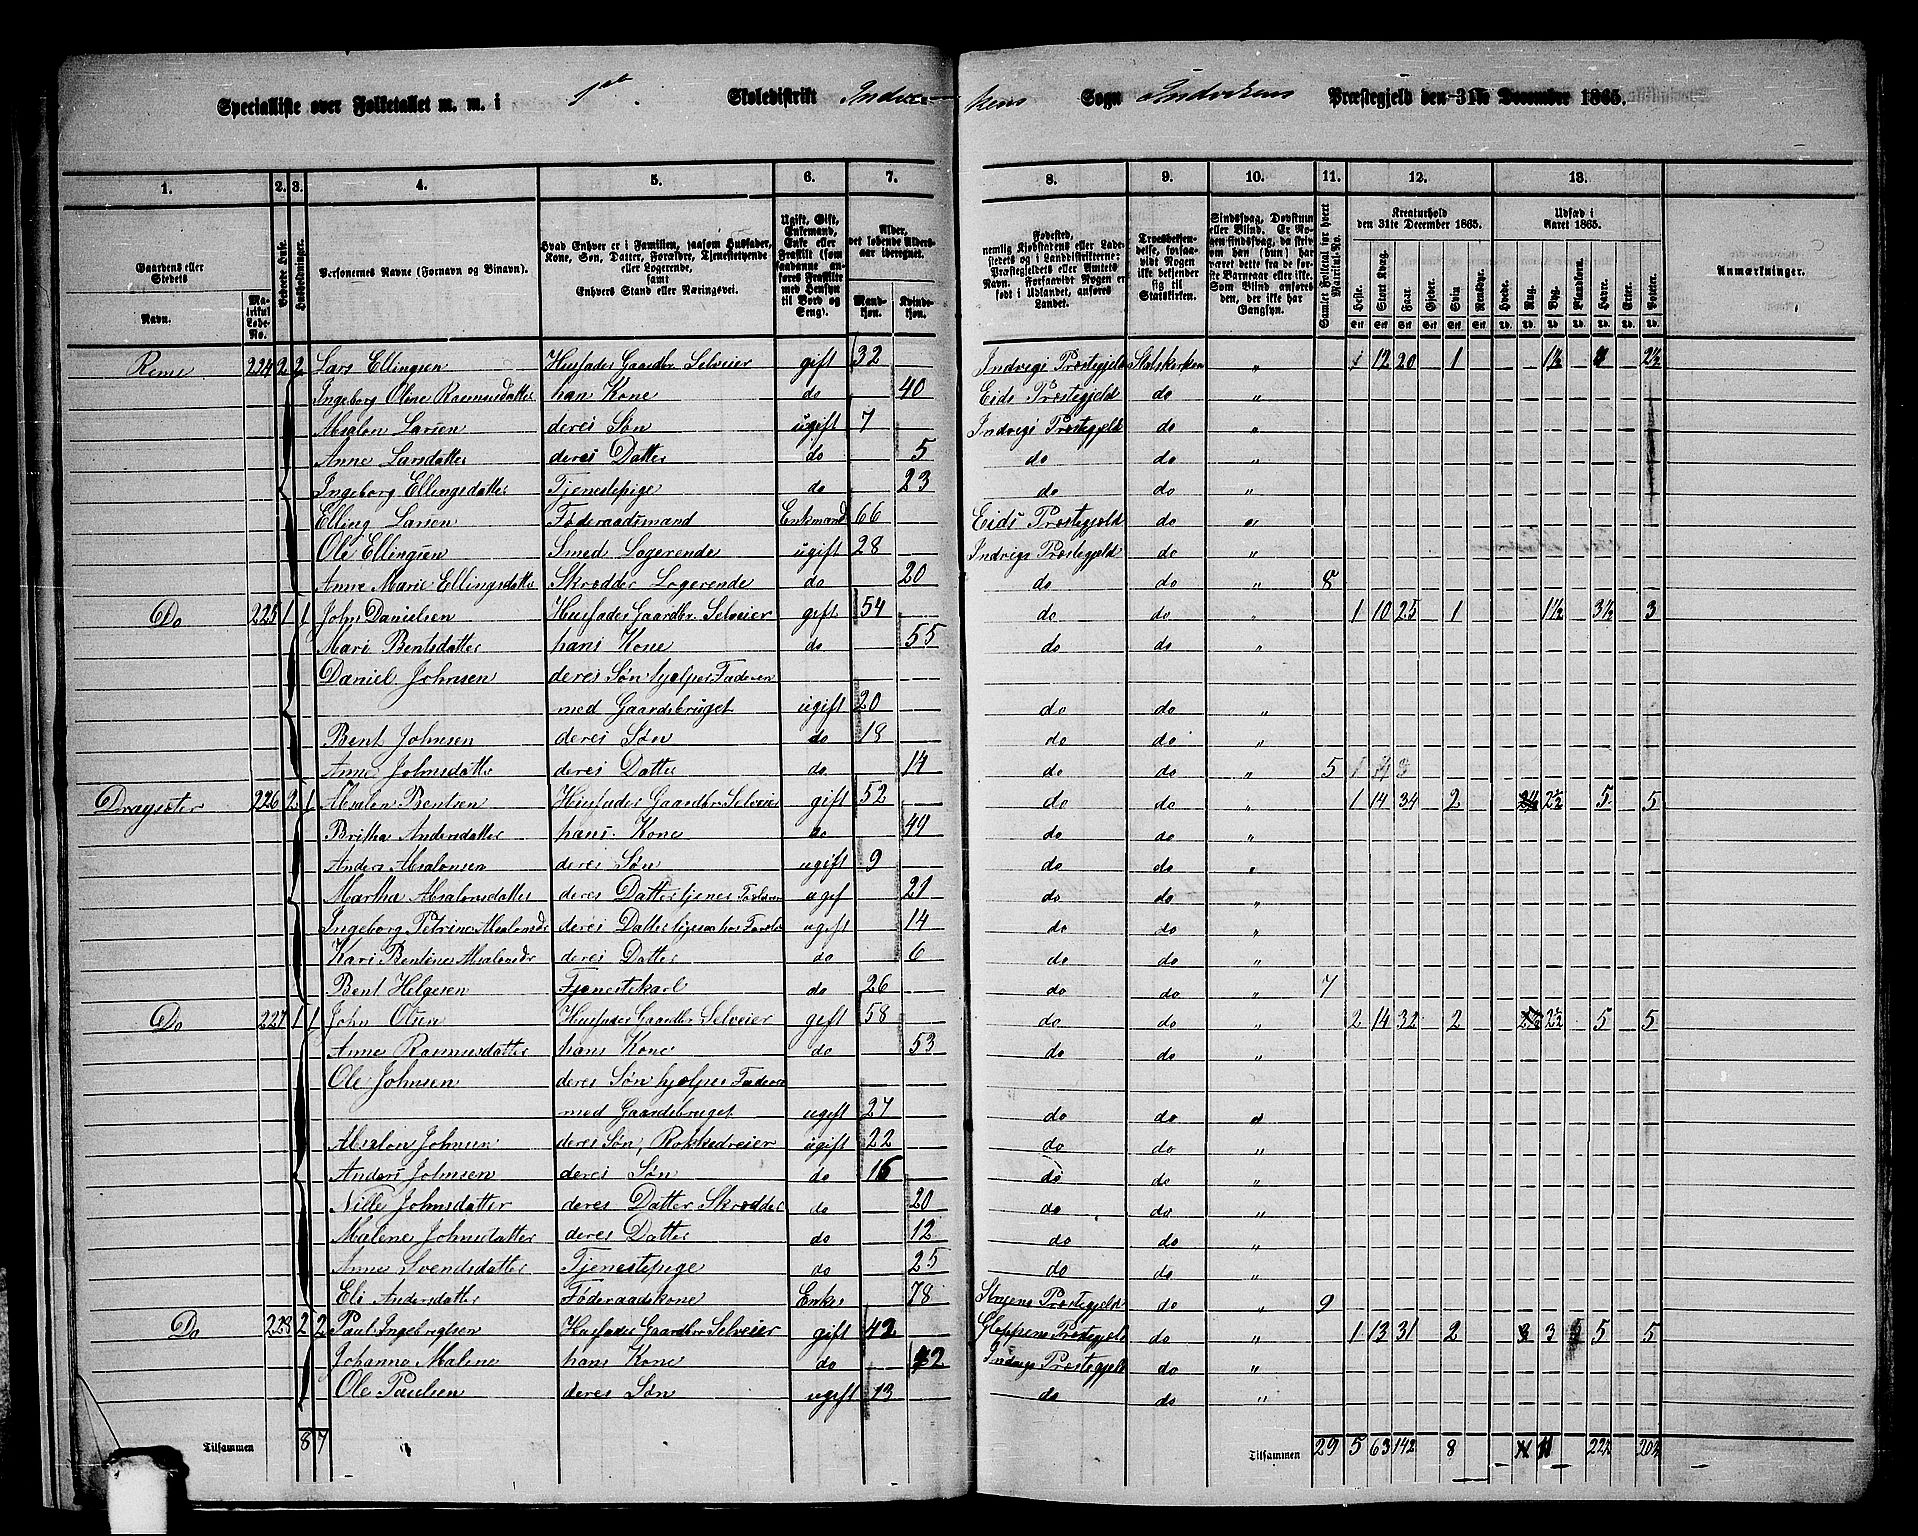 Specialliste over Folketallet m. m. i 1st Skoledistrikt Indvi- kens Sogn Indvikens Præstegjeld den 31te December 1865.
1. 2. 3. 4. 5. 6. 7. 8. 9. 10. 11. 12. 13.
Gaardens eller Stedets
Navn. Matrikul Løbe-No.
Beboede Huse.
Husholdninger.
Personernes Navne (Fornavn og Binavn).
Hvad Enhver er i Familien, saasom Husfader, Kone, Søn, Datter, Forældre, Tjenestetyende eller Logerende, samt Enhvers Stand eller Næringsvei.
Ugift, Gift, Enkemand, Enke eller Fraskilt (som saadanne anføres Fraskilte med Hensyn til Bord og Seng).
Alder, det løbende Alders-aar iberegnet.
Mandkjøn. Kvindekjøn.
Fødested, nemlig Kjøbstadens eller Ladestedets og i Landdistrikterne: Præstegjeldets eller Amtets Navn. Forsaavidt Nogen er født i Udlandet, anføres Landet.
Troesbekjendelse, forsaavidt Nogen ikke bekjender sig til Statskirken.
Sindssvag, Døvstum eller Blind. Er Nogen sindssvag, da skrives om han (hun) har været dette fra de første Barneaar eller ikke. Som Blind anføres den, der ikke har Gangsyn.
Samlet Folketal for hvert Matrikul-No.
Kreaturhold den 31te December 1865.
Udsæd i Aaret 1865.
Heste. Stort Kvæg. Faar. Gjeder. Svin. Rensdyr. Hvede. Rug. Byg. Blandkorn. Havre. Erter. Poteter.
Anmærkninger.
Reme 224 2 2 Lars Ellingsen Husfader Gaardbr. Selveier gift 32 Indvigs Præstegjeld Statskirken " 1 12 20 1 1½ 2½
Ingeborg Oline Rasmusdatter hans Kone do 40 Eids Præstegjeld do "
Absalon Larsen deres Søn ugift 7 Indvigs Præstegjeld do "
Anne Larsdatter deres Datter do 5 do do "
Ingeborg Ellingsdatter Tjenestepige do 23 do do "
Elling Larsen Føderaadsmand Enkmand 66 Eids Præstegjeld do "
Ole Ellingsen Smed Logerende ugift 28 Indvigs Præstegjeld do "
Anne Marie Ellingsdatter Skrædder Logerende do 20 do do " 8
Do 225 1 1 John Danielsen Husfader Gaardbr. Selveier gift 54 do do " 1 10 25 1 1½ 3½ 3
Mari Bentsdatter hans Kone do 55 do do "
Daniel Johnsen deres Søn hjelper Faderen
med Gaardsbruget ugift 20 do do "
Bent Johnsen deres Søn do 18 do do "
Anne Johnsdatter deres Datter do 14 do do " 5
Dragseter 226 2 1 Absalon Bentsen Husfader Gaardbr. Selveier gift 52 do do " 1 14 34 2 2½ 5 5
Britha Andersdatter hans Kone do 49 do do "
Anders Absalonsen deres Søn ugift 9 do do "
Martha Absalonsdatter deres Datter tjener Forældrene ugif 21 do do "
Ingeborg Petrine Absalonsdr deres Datter ugift 14 do do "
Kari Bentine Absalonsdr deres Datter do 6 do do "
Bent Helgesen Tjenestekarl do 26 do do " 7
Do 227 1 1 John Olsen Husfader Gaardbr. Selveier gift 58 do do " 2 14 32 2 2½ 5 5
Anne Rasmusdatter hans Kone do 53 do do "
Ole Johnsen deres Søn hjelper Faderen
med Gaardsbruget ugift 27 do do "
Absalon Johnsen deres Søn, Rokkedreier ugift 22 do do "
Anders Johnsen deres Søn do 16 do do "
Nille Johnsdatter deres Datter Skrædder do 20 do do "
Malene Johnsdatter deres Datter do 12 do do "
Anne Svendsdatter Tjenestepige do 25 do do "
Eli Andersdatter Føderaadskone Enke 78 Præstegjeld do " 9
Do 228 2 2 Paul Ingebrigtsen Husfader Gaardbr. Selveier gift 42 Gloppens Præstegjeld do " 1 13 31 2 3 5 5
Johanna Malene hans Kone do Indvigs Præstegjeld do "
Ole Paulsen deres Søn ugift 13 do do "
Tilsammen 8 7 Tilsammen 29 5 63 142 8 11 22½ 20½